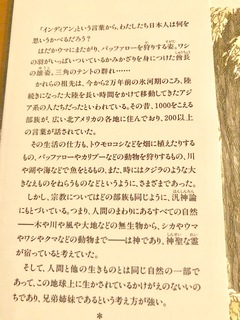 「インディアン」という言葉から、わたしたち日本人は何を
思いうかべるだろう？
はだかウマにまたがり、バッファローを狩りする姿。ワシ
の羽がいっぱいついているかみかざりを身につけた酋長
の雄姿。三角のテントの群れ……
かれらの祖先は、今から2万年前の氷河期のころ、陸
続きになった大陸を長い時間をかけて移動してきたアジ
ア系の人たちだったといわれている。その昔、1000をこえる
部族が、広い北アメリカの各地に住んでおり、200以上
の言葉が話されていた。
その生活の仕方も、トウモロコシなどを畑に植えたりする
もの、バッファローやカリブーなどの動物を狩りするもの、川
や湖や海などで魚をとるもの、また、時にはクジラのような大
きなえものをねらうものなどというように、さまざまであった。
しかし、宗教についてはどの部族も同じように、汎神論
にもとづいている。つまり、人間のまわりにあるすべての自然
――木や川や風や大地などの無生物から、シカやウマ
やワシやクマなどの動物まで――は神であり、神聖な霊
が宿っていると考えていた。
そして、人間と他の生きものとは同じ自然の一部であ
って、この地球上に生かされているかけがえのないいのち
であり、兄弟姉妹であるという考え方が強い。
*